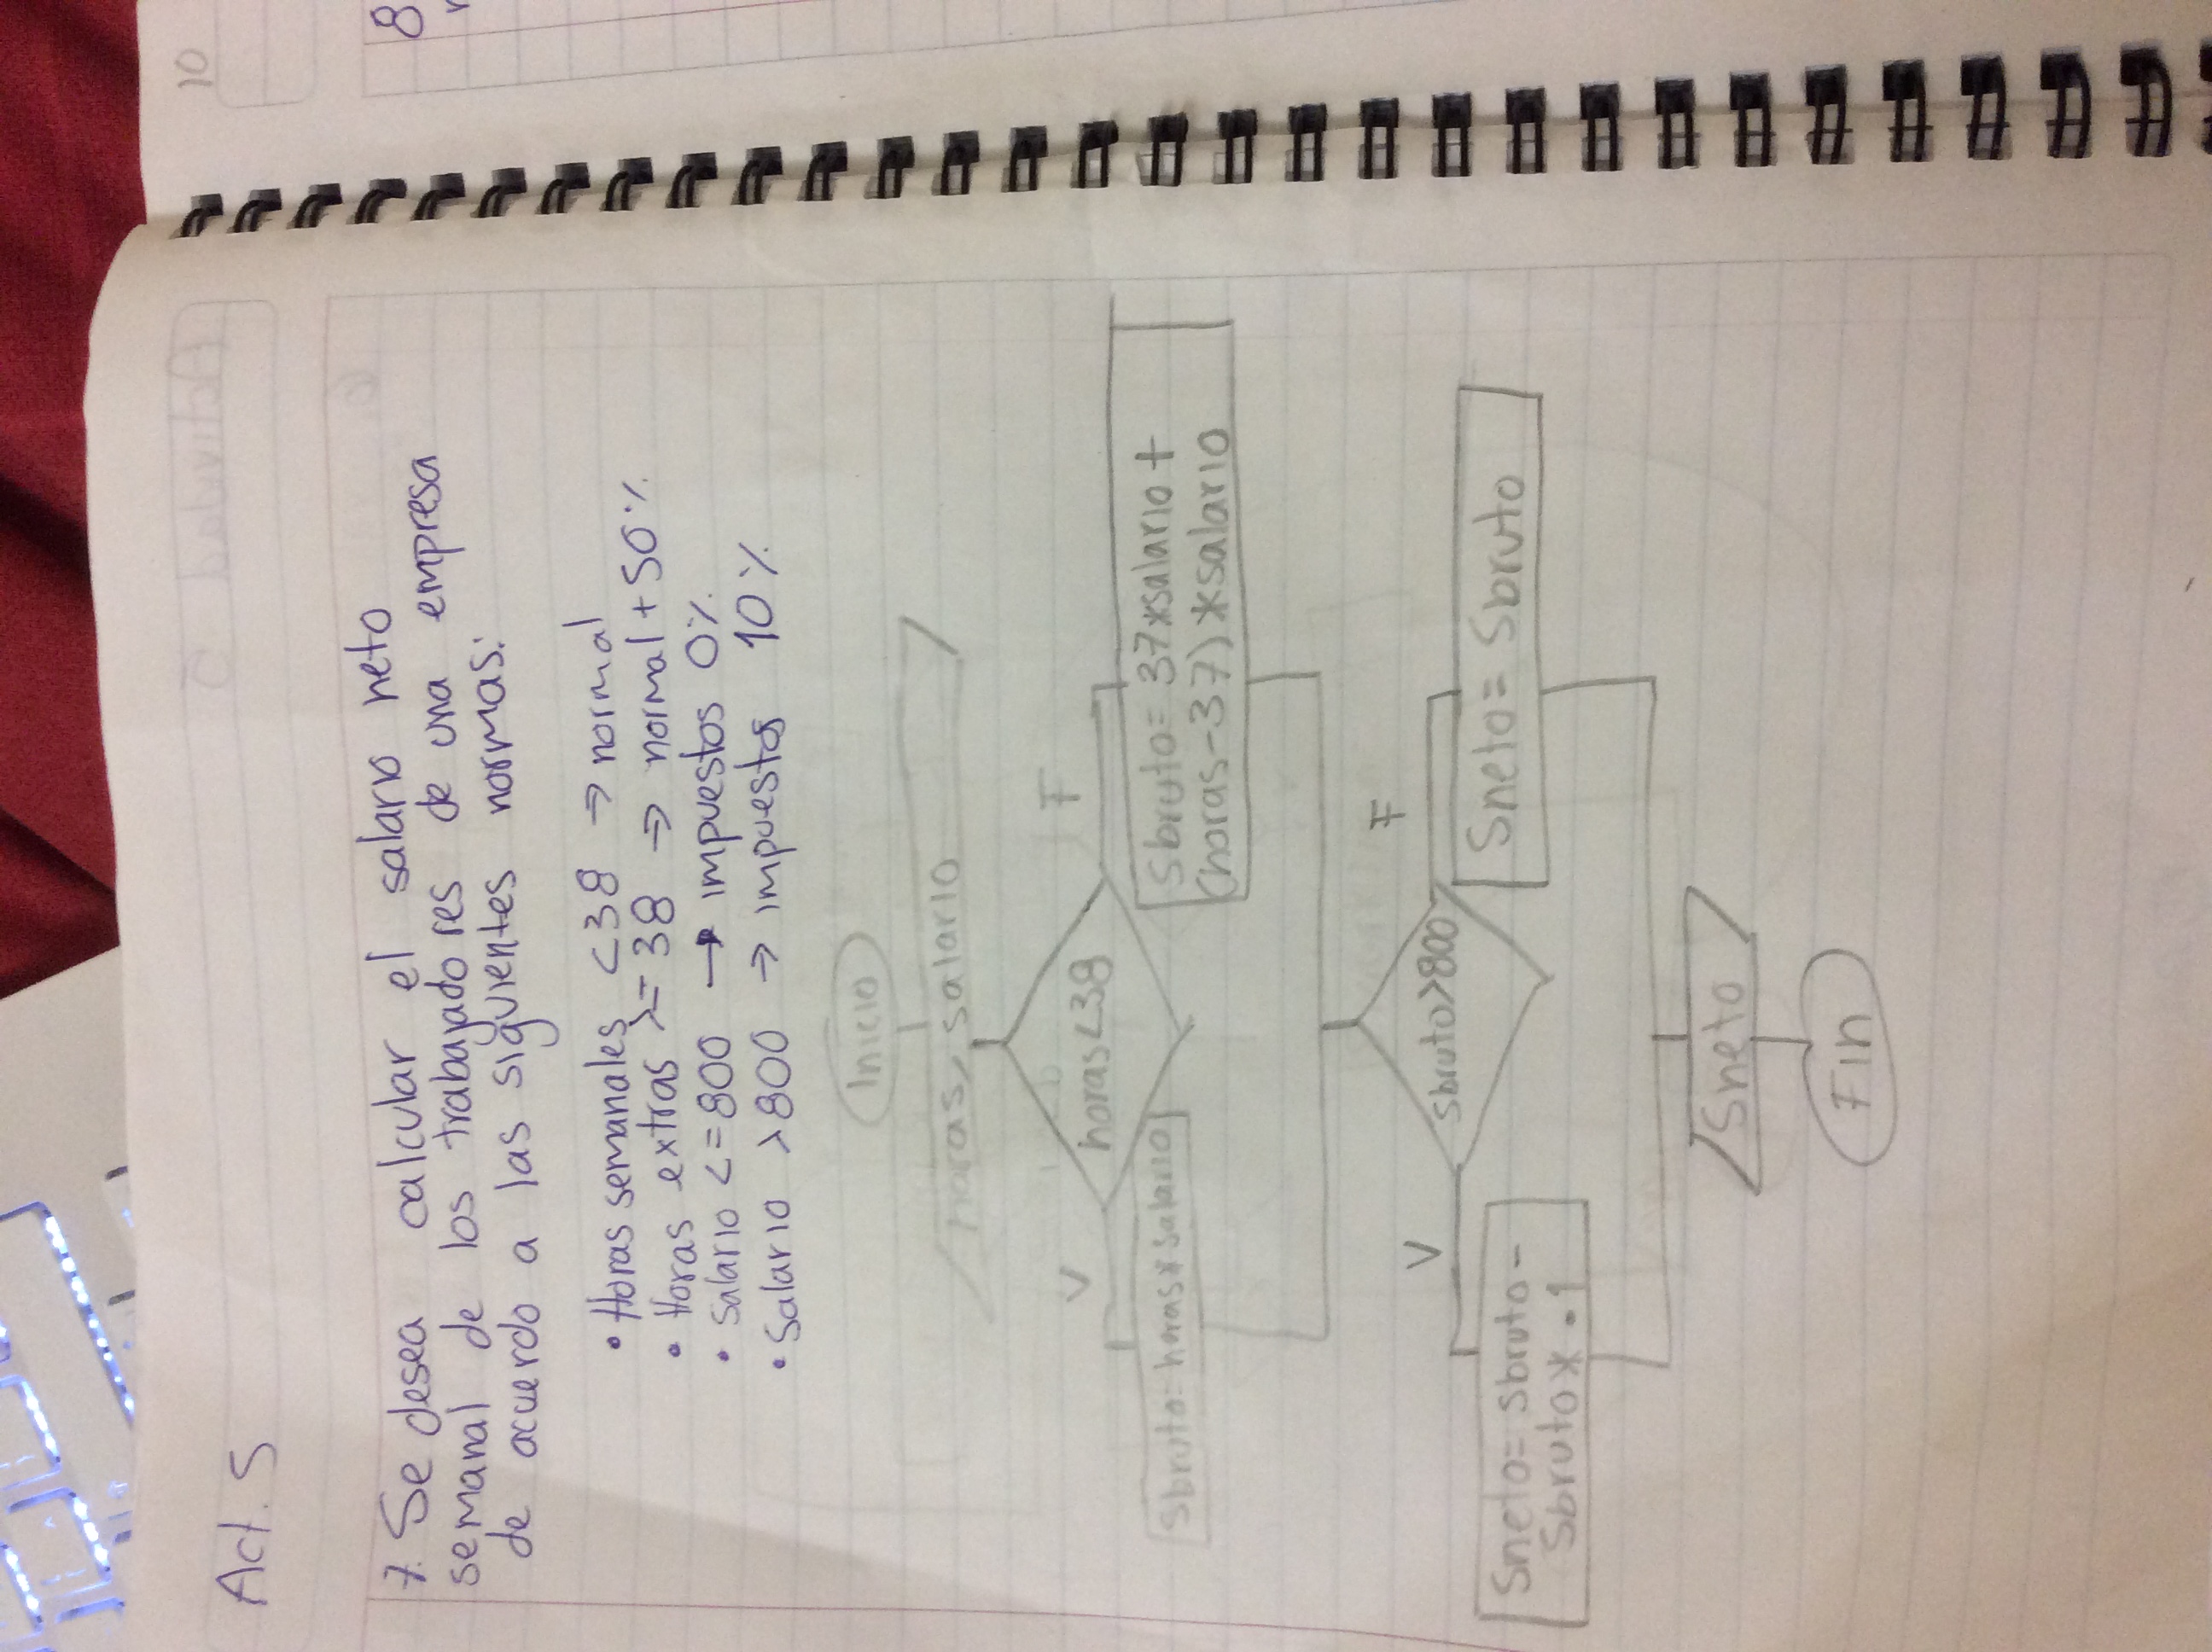 Act. 5
7. Se desea calcular el salario neto
semanal de los trabajadores de una empresa
de acuerdo a las siguientes normas:
• Horas semanales <38 → normal
• Horas extras >= 38 → normal + 50%
• Salario <= 800 → impuestos 0%
• Salario > 800 → impuestos 10%
Inicio
horas, salario
V
horas<38
F
Sbruto=horas*salario
Sbruto= 37*salario +
(horas-37)*salario
V
Sbruto>800
F
Sneto= Sbruto -
Sbruto* .1
Sneto= Sbruto
Sneto
Fin
10
8